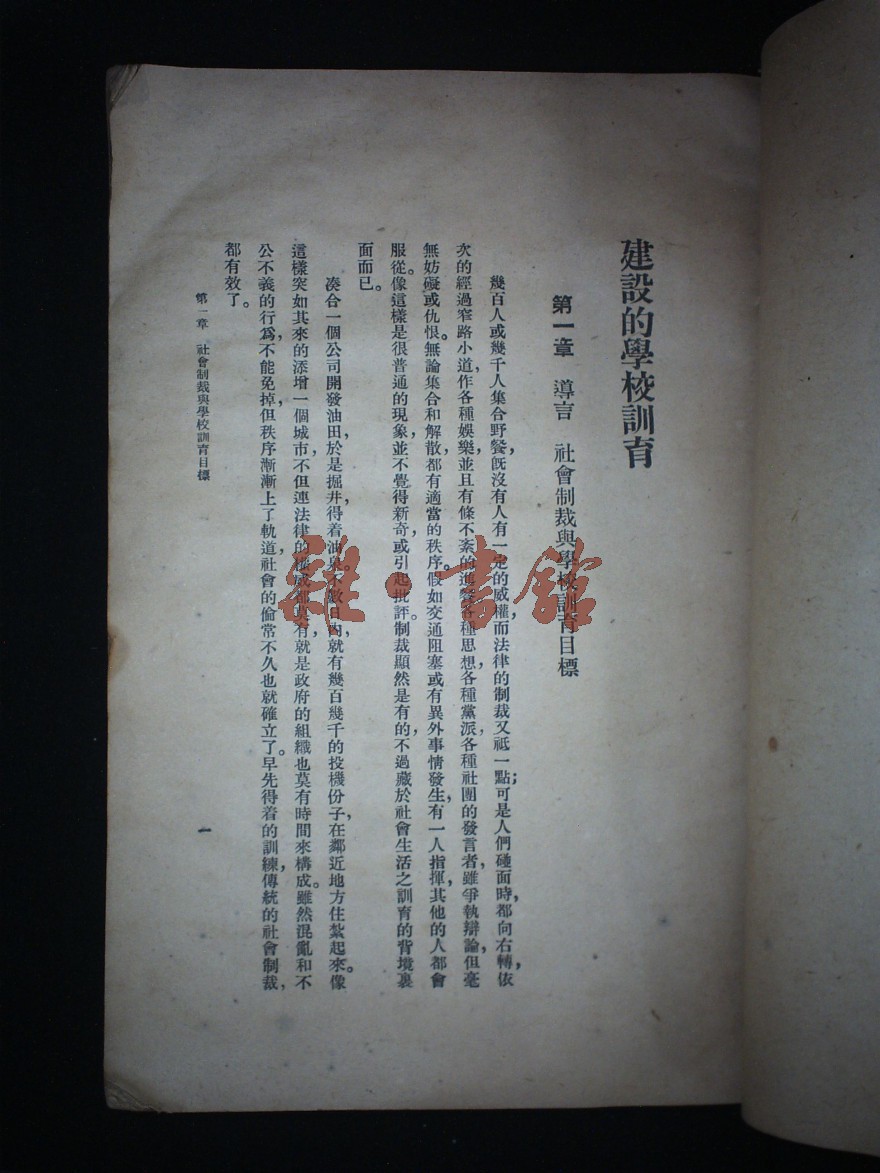 建設的學校訓育
第一章　導言　社會制裁與學校訓育目標
幾百人或幾千人集合野餐，旣沒有人有一定的威權，而法律的制裁又祗一點；可是人們碰面時都向右轉，依
次的經過窄路小道，作各種娛樂，並且有條不紊的進餐。各種思想，各種黨派，各種社團的發言者，雖爭執辯論，但毫
無妨礙或仇恨。無論集合和解散，都有適當的秩序。假如交通阻塞或有異外事情發生，有一人指揮，其他的人都會
服從。像這樣是很普通的現象，並不覺得新奇，或引起批評。制裁顯然是有的，不過藏於社會生活之訓育的背境裏
面而已。
凑合一個公司開發油田，於是掘井得着油泉。不數日內，就有幾百幾千的投機份子，在鄰近地方住紮起來。像
這樣突如其來的添增一個城市，不但連法律的權威都莫有，就是政府的組織也莫有時間來構成。雖然混亂和不
公不義的行爲，不能免掉，但秩序漸漸上了軌道，社會的倫常不久也就確立了。早先得着的訓練，傳統的社會制裁，
都有效了。
第一章　社會制裁與學校訓育目標
一
雜·書館